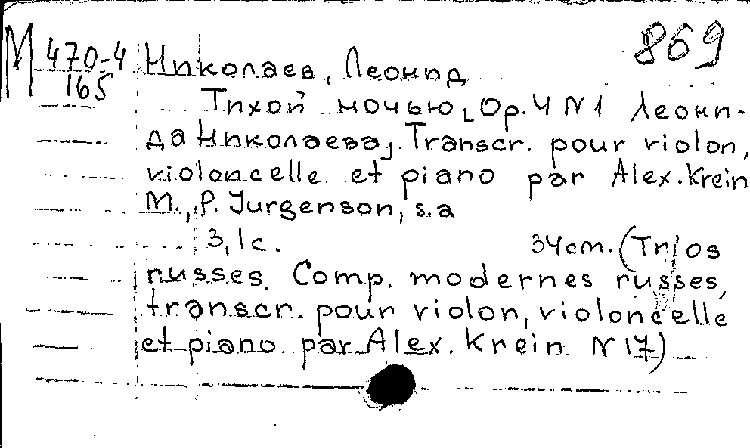 869
М 470-4
165
Николаев, Леонид
Тихой ночью, Op.4 N1 Леони-
да Николаева, Transcr. pour violon,
violoncelle et piano par Alex. Krein
М., P. Jurgenson, s.a
3,1c. 34cm. (Trios
russes. Comp. modernes russes,
transcr. pour violon, violoncelle
et piano par Alex. Krein N17)